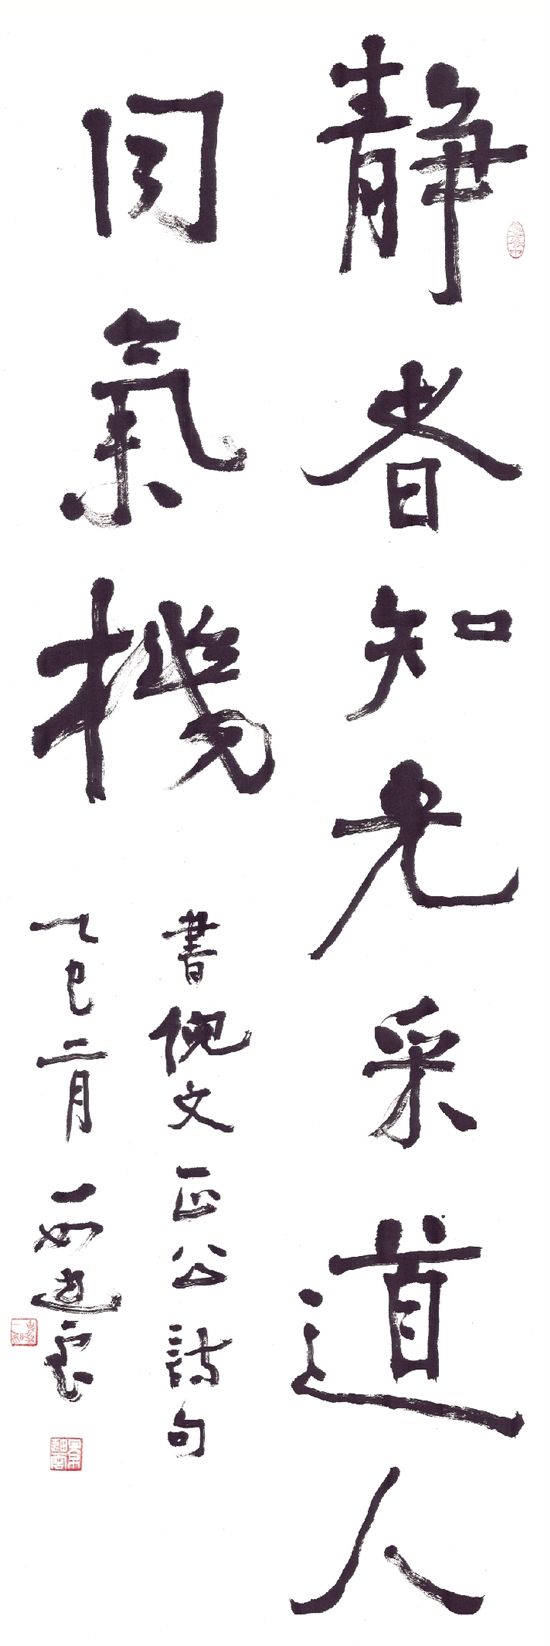 静者知光采道人
同氣機
書倪文正公詩句
乙巳二月一如道